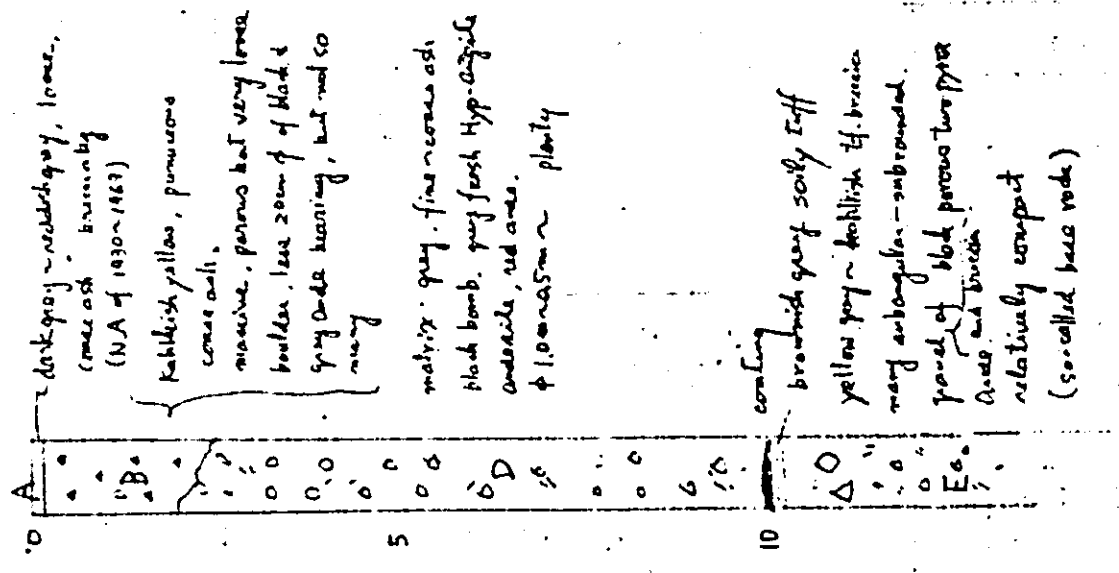 A
0
dark grey ~ reddish grey, loose,
coarse ash
(N.A of 1930~1967)
B
yellow, pumiceous
coarse ash.
massive, porous but very loose
boulder, less 20cm φ of black &
grey ande bearing, but not so
many
5
D
matrix grey. fine ~ coarse ash
black bomb. grey fresh Hyp-Augite
andesite, red ande.
plenty
10
brownish grey soily tuff
yellow grey ~ tf. breccia
many subangular - subrounded.
gravel of block porous two pyrox
ande. and breccia
E
relatively compact
(so-called base rock)